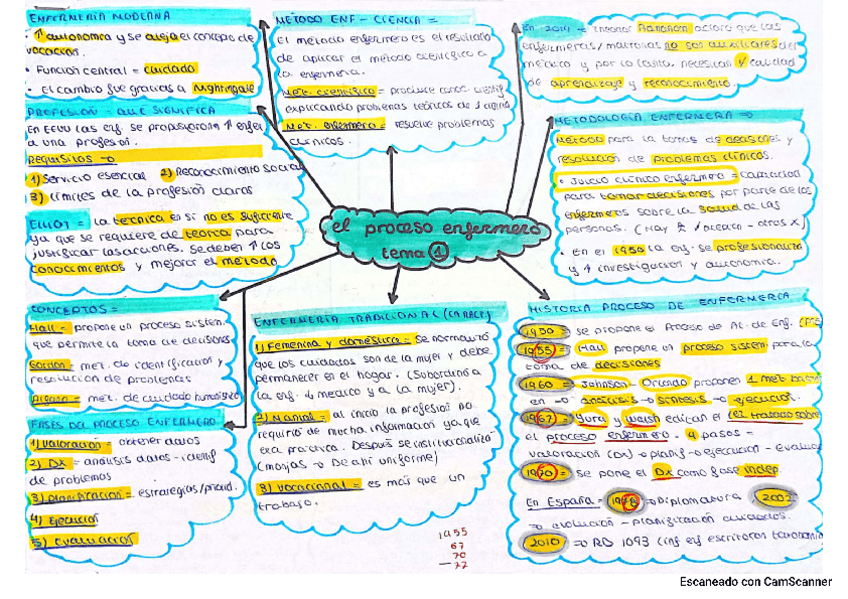 ENFERMERÍA MODERNA
• ↑ autonomía y se aleja el concepto de
vocación.
• Función central = cuidado
• El cambio fue gracias a Nightingale
PROFESIÓN - QUÉ SIGNIFICA
En EEUU las enf. se propusieron ↑ enfer
a una profesión.
Requisitos →
1) Servicio esencial 2) Reconocimiento social
3) límites de la profesión claros
ELLIOT = la técnica en sí no es suficiente
ya que se requiere de teoría para
justificar las acciones. Se deben ↑ los
conocimientos y mejorar el método
MÉTODO ENF - CIENCIA =
El método enfermero es el resultado
de aplicar el método científico a
la enfermería.
Met. científico = produce conoc. científ
explicando problemas teóricos de
Met. enfermero = resuelve problemas
clínicos.
En 2014 =
aclara que las
enfermeras/matronas no son auxiliares del
médico y por lo tanto, necesitan
calidad
de aprendizaje y reconocimiento.
METODOLOGÍA ENFERMERA →
Método para la toma de decisiones y
resolución de problemas clínicos.
• Juicio clínico enfermero = capacidad
para tomar decisiones por parte de los
enfermeros sobre la salud de las
personas.
• En el 1950 la enf. se profesionaliza
y ↑ investigación y autonomía.
el proceso enfermero
tema 1
CONCEPTOS =
Hall = propone un proceso sistem.
que permite la toma de decisiones
Gordon = met. de identificación y
resolución de problemas
met. de cuidado humanista
FASES DEL PROCESO ENFERMERO
1) Valoración = obtener datos
2) Dx = análisis datos - identif
de problemas
3) Planificación = estrategias/priorid.
4) Ejecución
5) Evaluación
ENFERMERÍA TRADICIONAL
1) Femenina y doméstica = Se normalizó
que los cuidados son de la mujer y debe
permanecer en el hogar. (Subordinó a
la enf. ↓ médico y a la mujer).
2) Manual = al inicio la profesión no
requirió de mucha información ya que
era práctica. Después se institucionalizó
(monjas → De ahí uniforme)
3) Vocacional = es más que un
trabajo.
1955
67
70
77
HISTORIA PROCESO DE ENFERMERÍA
1950 = se propone el Proceso de At. de Enf.
1955 = Hall propone un proceso sistem para la
toma de decisiones
1960 = Johnson - Orlando proponen 1 met
en → análisis → síntesis → ejecución.
1967 = Yura y Walsh editan el 1er trabajo sobre
el proceso enfermero. 4 pasos =
valoración (Dx) → planif → ejecución - evaluac
1970 = se pone el Dx como fase indep.
En España = → Diplomatura
→ evolución - planificación cuidados.
2010 → RD 1093